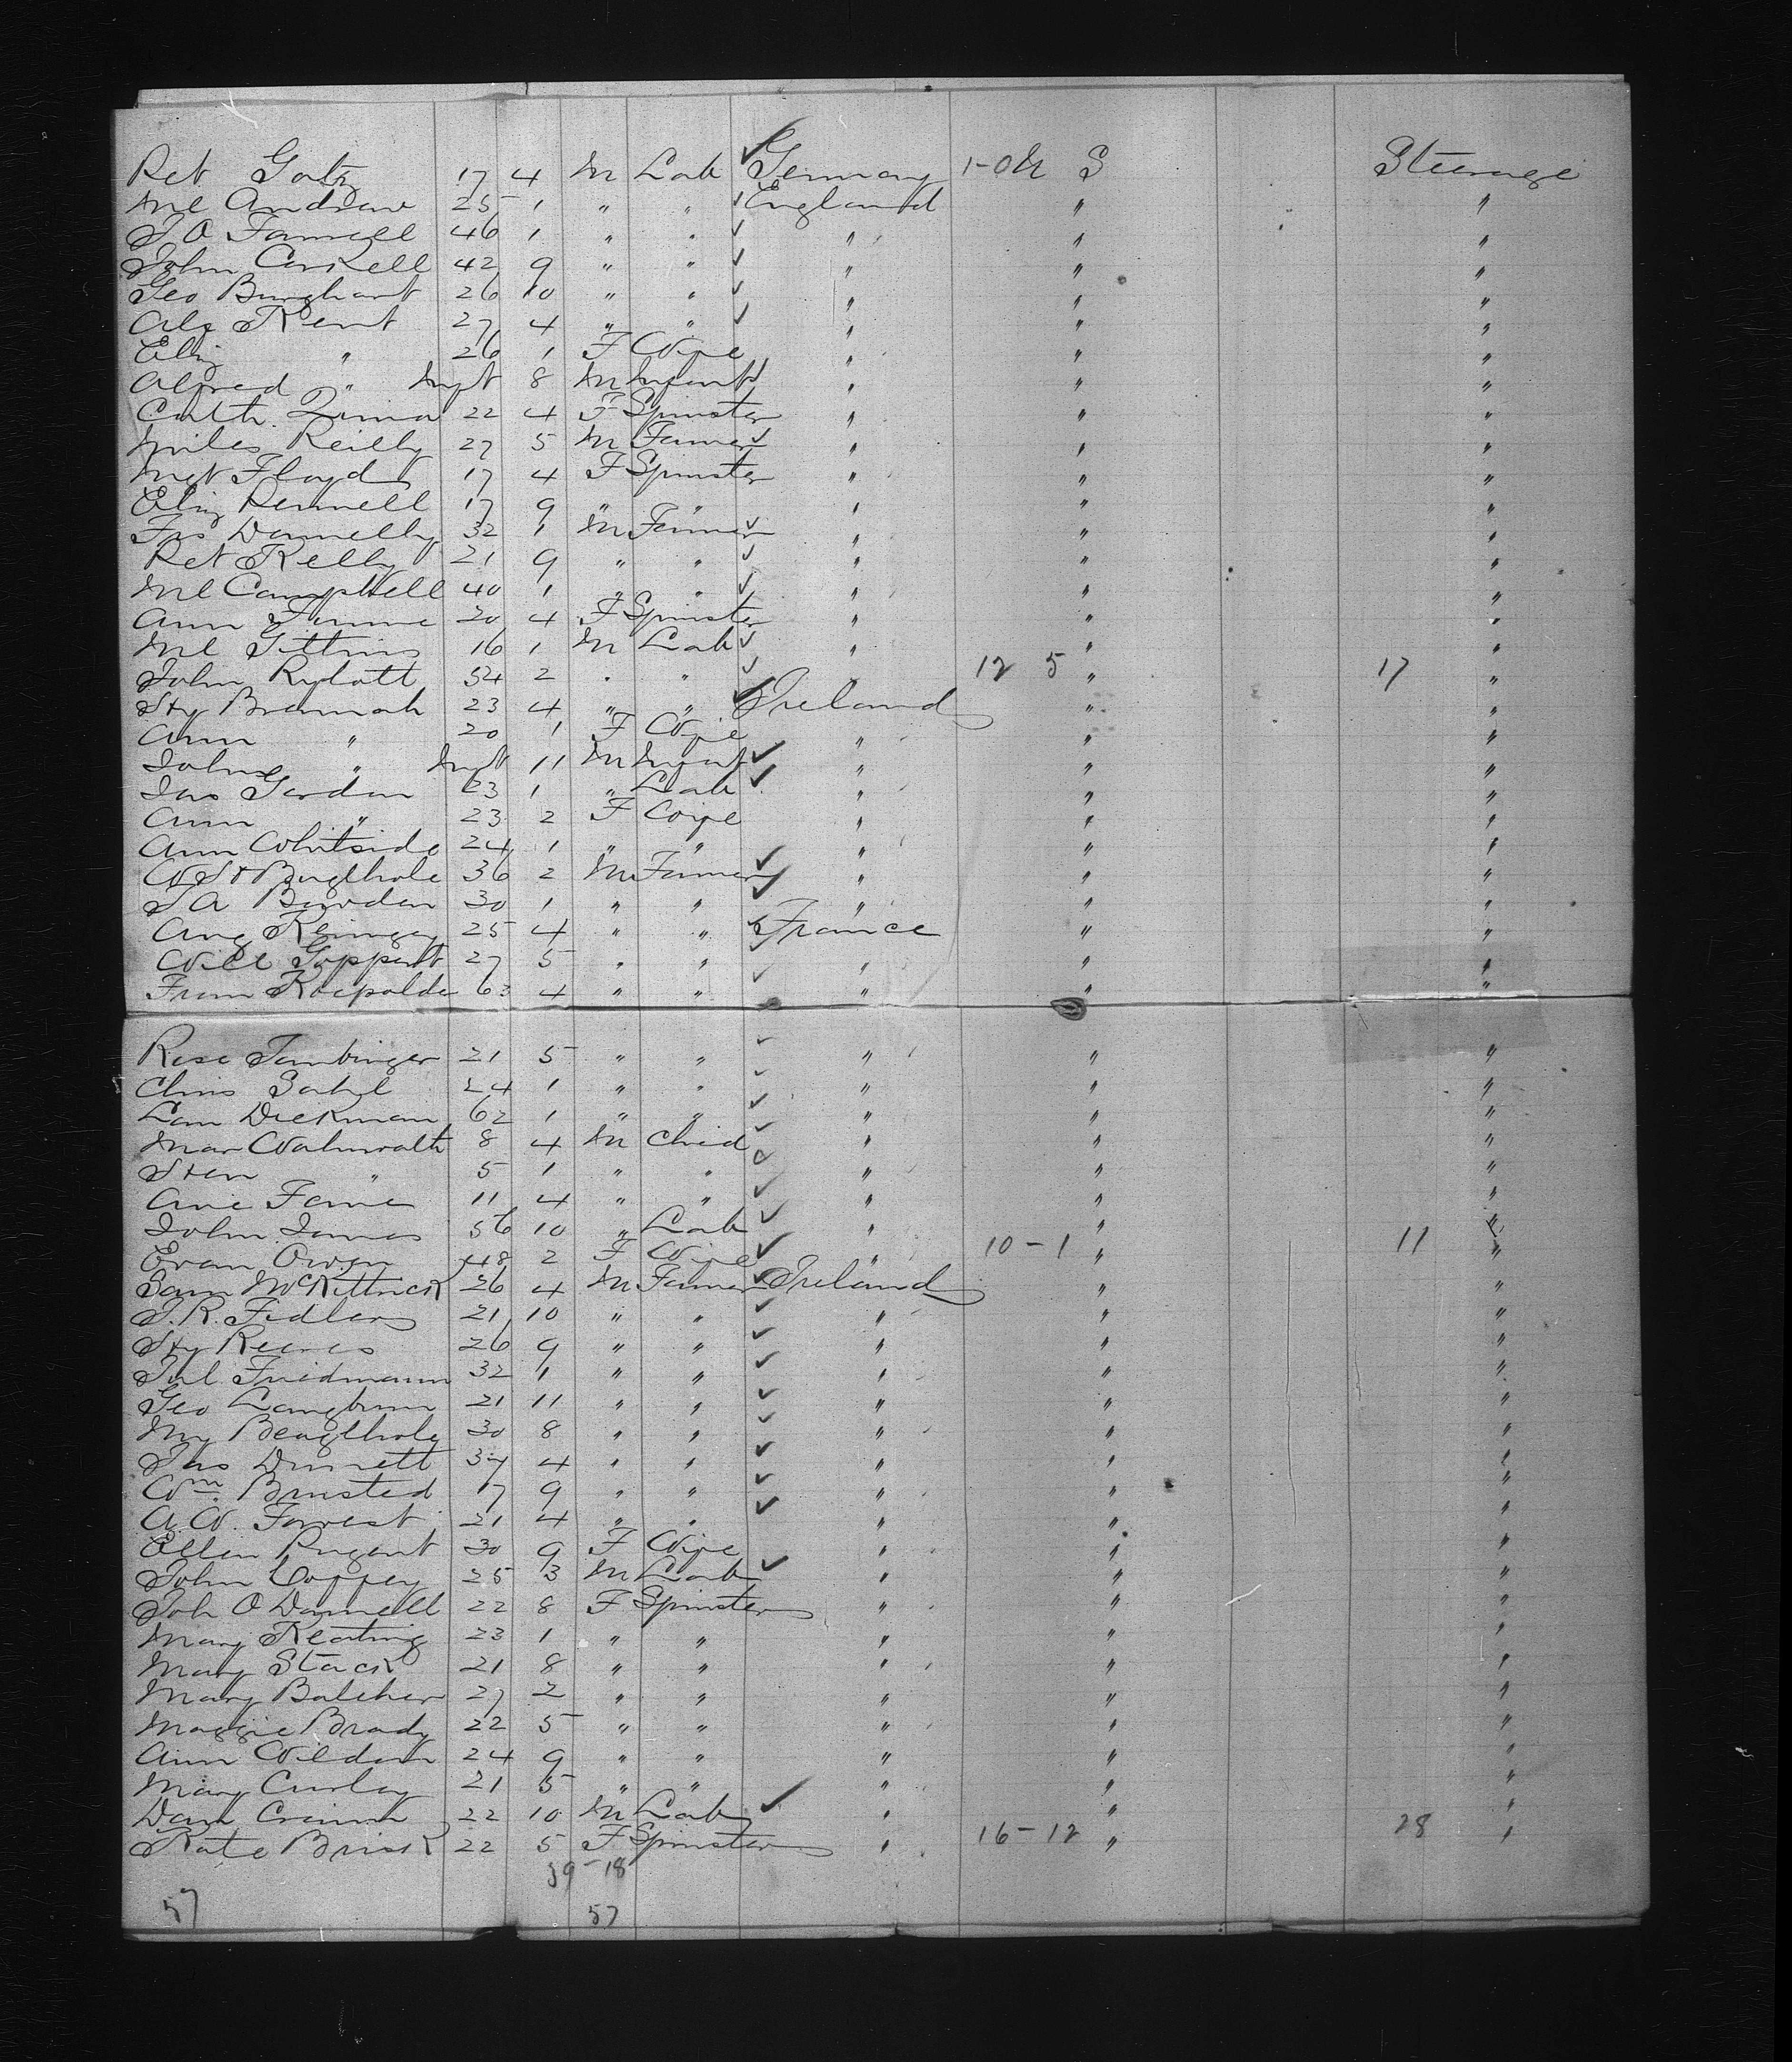 Pet Gatz 17 4 M Lab Germany 1-0 S Steerage
Ml Andrew 25 1 " " England " "
J O Farrell 46 1 " " " " "
John Carkell 42 9 " " " " "
Geo Burghart 26 10 " " " " "
Alf Kent 27 4 " " " " "
Eliz " 26 1 F Wife " " "
Alfred " Inft 8 M Infant " " "
Cath. Quinn 22 4 F Spinster " " "
Miles Reilly 27 5 M Farmer " " "
Mgt Floyd 17 4 F Spinster " " "
Eliz Pennell 17 9 " " " " "
Jas Donnelly 32 1 M Farmer " " "
Pet Kelly 21 9 " " " " "
Ml Campbell 40 1 " " " " "
Ann 20 4 F Spinster " " "
Ml Gittins 16 1 M Lab " " "
John Rylott 54 2 " " 12 5 " 17 "
Hy Brannah 23 4 " " Ireland " "
Ann " 20 1 F Wife " " "
John " Inft 11 M Infant " " "
Jas Gordon 23 1 " Lab " " "
Ann " 23 2 F Wife " " "
Ann Whitside 24 1 " " " " "
W H Buglhole 36 2 M Farmer " " "
J A Bowden 30 1 " " " " "
Aug 25 4 " " France " "
Will Goppert 27 5 " " " " "
Fram 63 4 " " " " "
Rose Tambinger 21 5 " " " " "
Chris Sahl 24 1 " " " " "
Lam Dickman 62 1 " " " " "
Mar Walmrath 8 4 M Child " " "
Hen " 5 1 " " " " "
Ame Fame 11 4 " " " " "
John James 56 10 " Lab " " "
Evan Owen 48 2 F Wife " 10-1 " 11 "
Sam McKittrick 26 4 M Farmer Ireland " "
J. R. Fidlers 21 10 " " " " "
Hy Reeves 26 9 " " " " "
Jul Friedmann 32 1 " " " " "
Geo Langburn 21 11 " " " " "
My Beaglhole 30 8 " " " " "
Jas Dunnett 37 4 " " " " "
Wm. Brusted 17 9 " " " " "
A. W. Forrest 21 4 " " " " "
Ellen Nugent 30 9 F Wife " " "
John Coffey 25 3 M Lab " " "
Joh O Donnell 22 8 F Spinster " " "
Mary Keating 23 1 " " " " "
Mary Stack 21 8 " " " " "
Mary Balcher 27 2 " " " " "
Maggie Brady 22 5 " " " " "
Ann Weldon 24 9 " " " " "
Mary Curley 21 5 " " " " "
Danl Cronin 22 10 M Lab " " "
Kate Brisk 22 5 F Spinster " 16-12 " 28 "
39-18
57 57